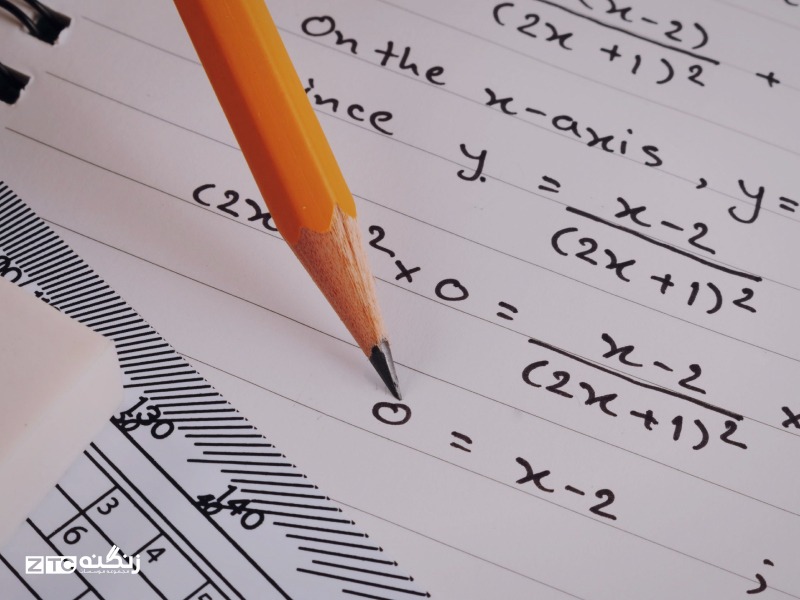 (x-2)
(2x+1)² +
On the x-axis, y=
ince y = x-2
(2x+1)²
(2x ² x 0 = x-2 x
(2x+1)²
0 = x-2
;
130
140
3
6 4
ZTC زنگنه